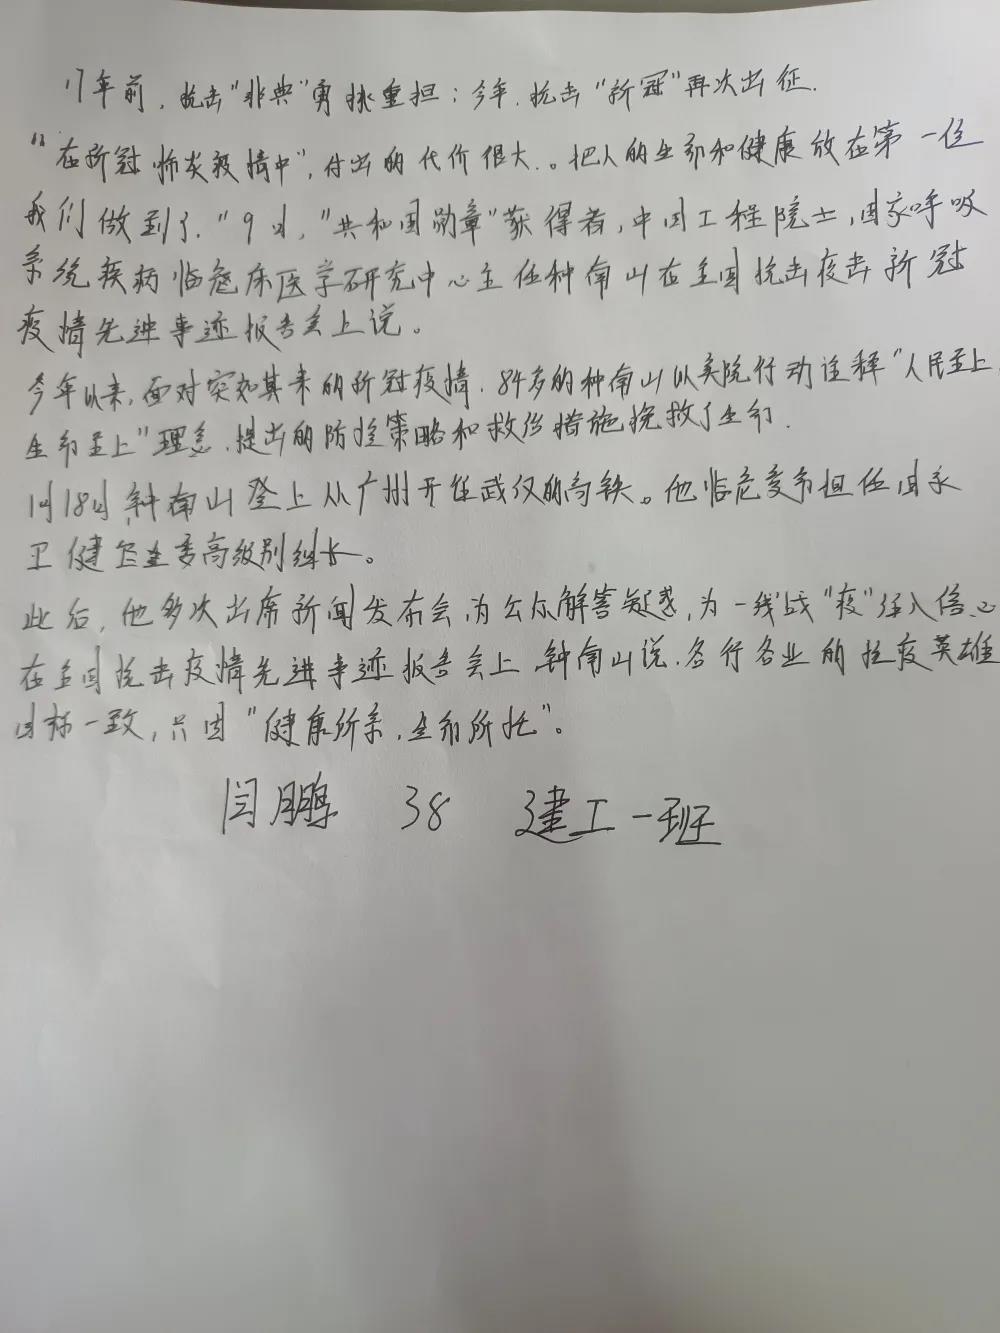 17年前，抗击“非典”勇挑重担；今年，抗击“新冠”再次出征.
“在新冠肺炎疫情中”，付出的代价很大.。把人的生命和健康放在第一位
我们做到了.”9日，“共和国勋章”获得者，中国工程院士，国家呼吸
系统疾病临床医学研究中心主任钟南山在全国抗击疫击新冠
疫情先进事迹报告会上说。
今年以来，面对突如其来的新冠疫情，84岁的钟南山以实际行动诠释“人民至上，
生命至上”理念，提出的防控策略和救治措施挽救了生命.
1月18日钟南山登上从广州开往武汉的高铁。他临危受命担任国家
卫健委高级别组长。
此后，他多次出席新闻发布会，为公众解答疑惑，为一线战“疫”注入信心
在全国抗击疫情先进事迹报告会上钟南山说，各行各业的抗疫英雄
目标一致，只因“健康所系，生命所托”。
闫鹏 38 建工一班